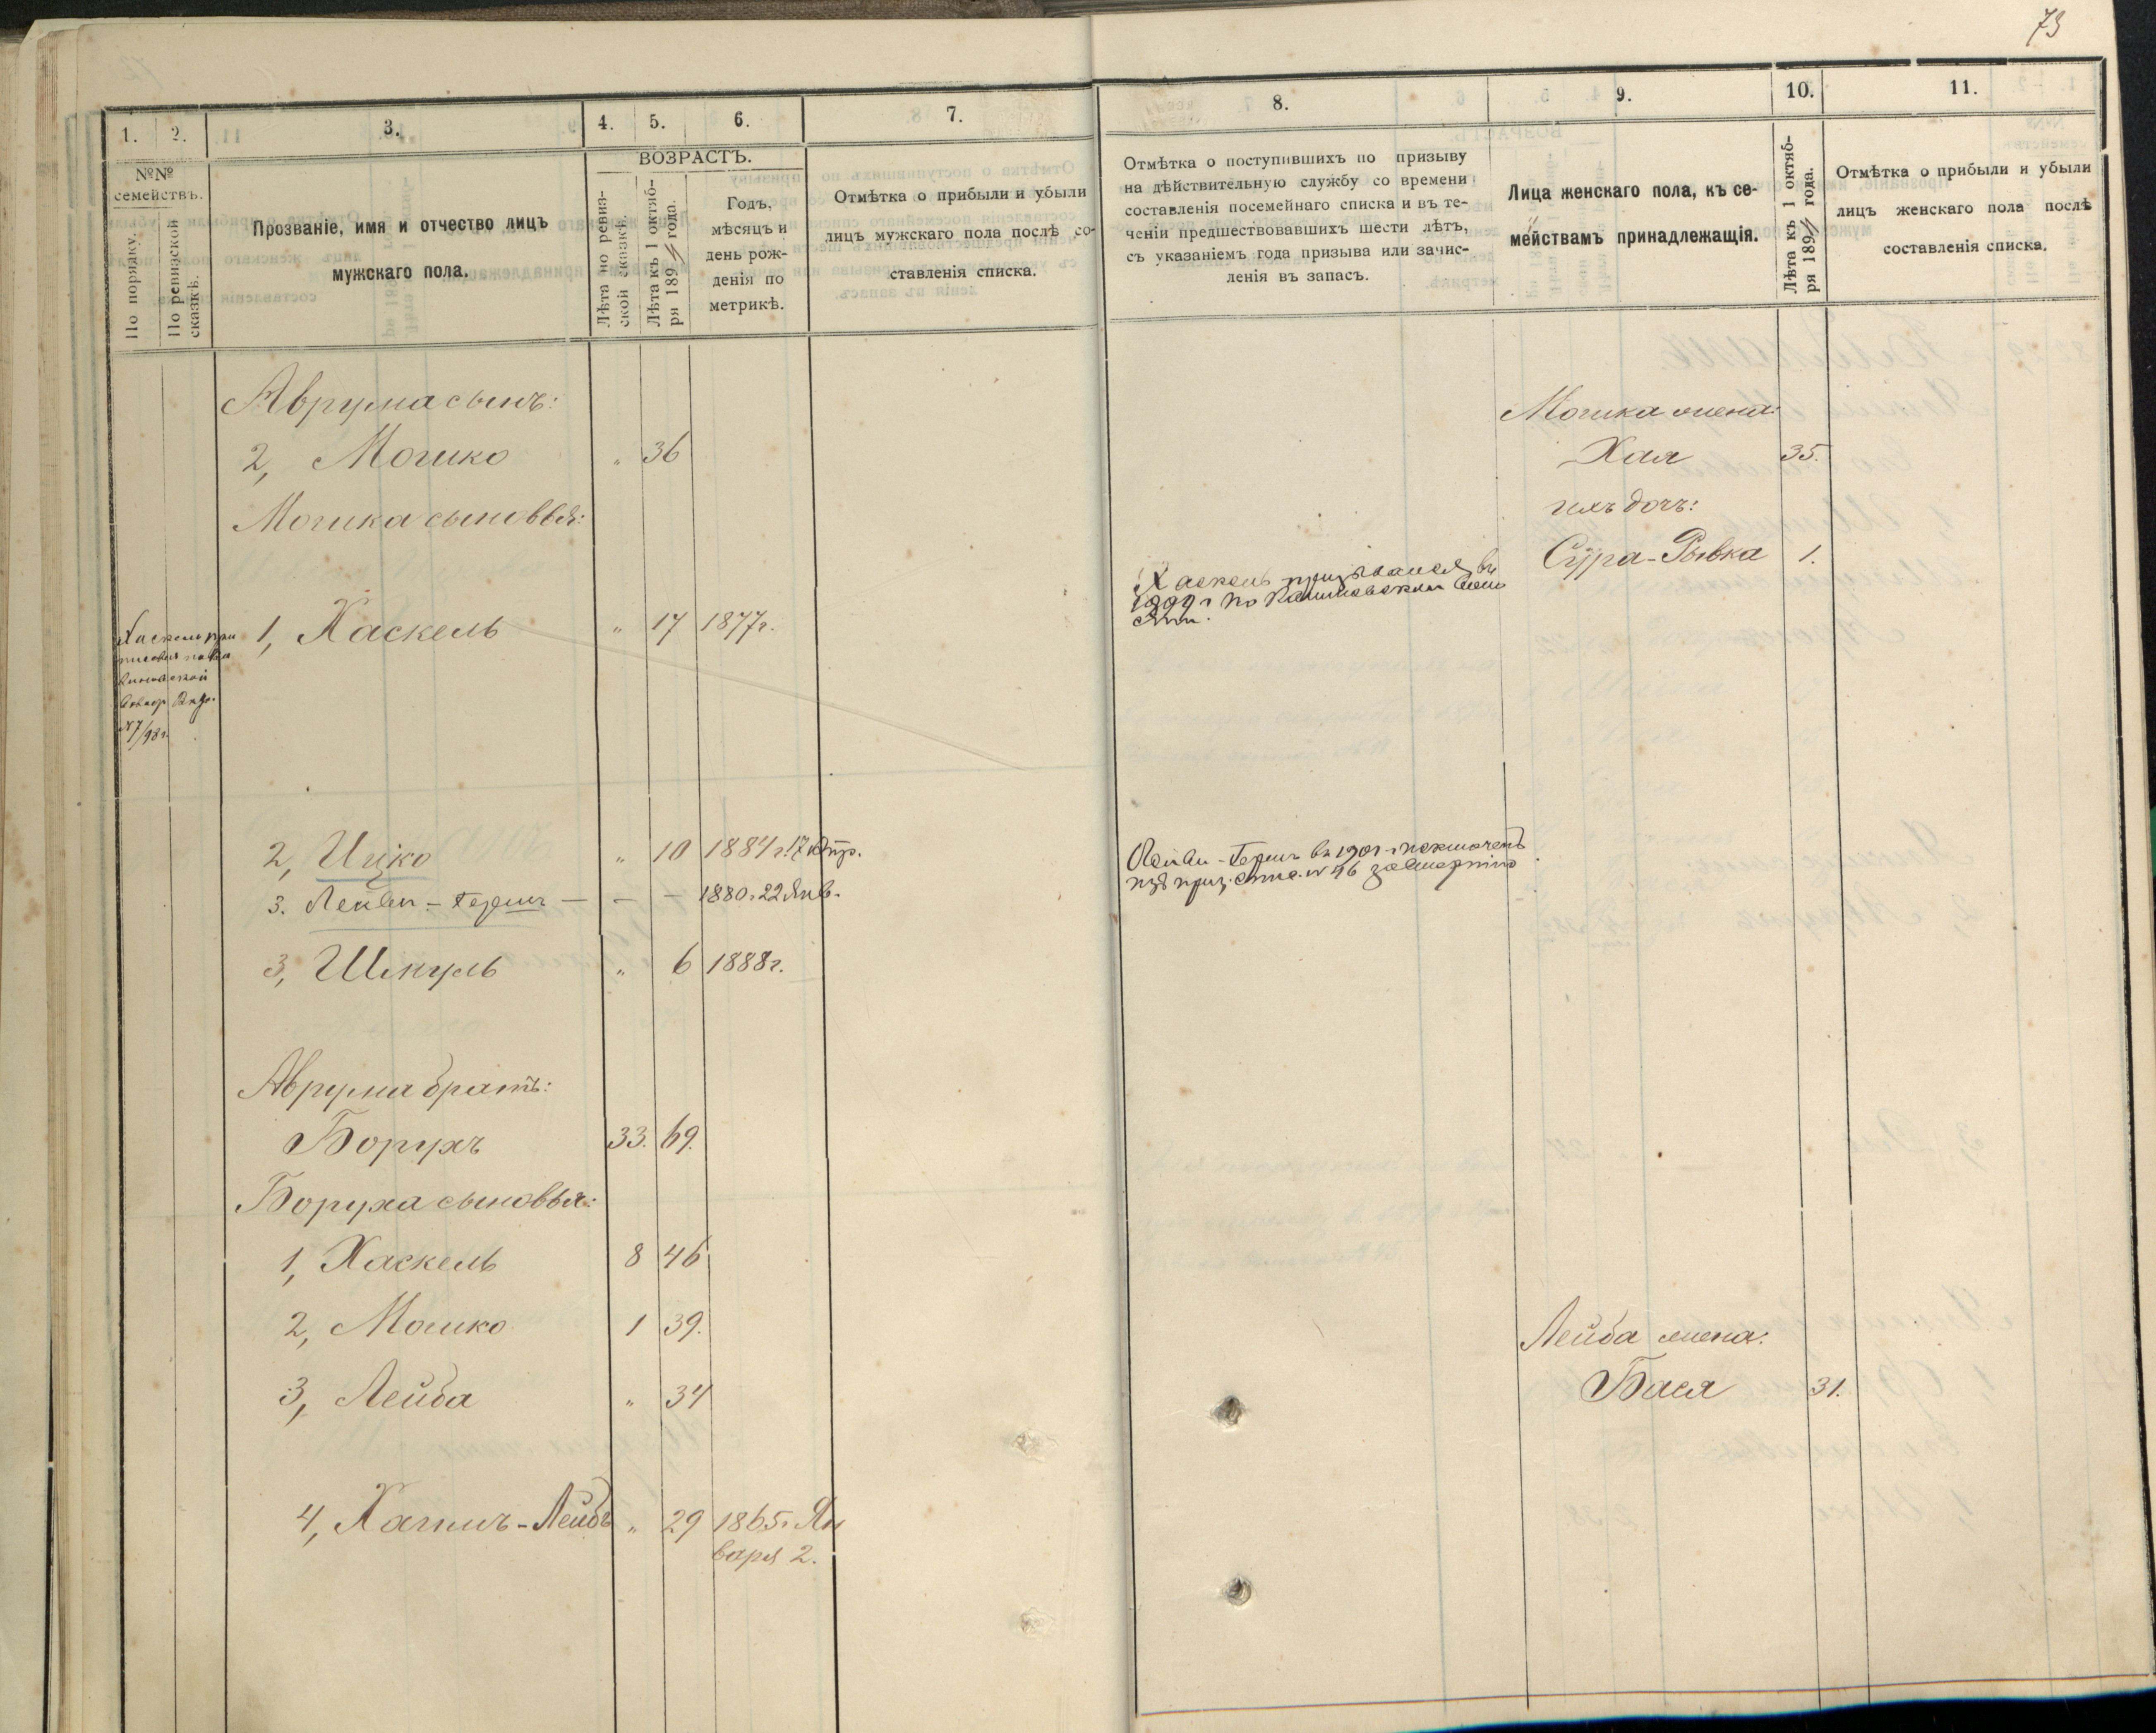 73
1.
2.
3.
4.
5.
6.
7.
8.
9.
10.
11.
№№ семействъ.
По порядку.
По ревизской сказкѣ.
Прозваніе, имя и отчество лицъ
мужскаго пола.
ВОЗРАСТЪ.
Лѣта по ревиз-
ской сказкѣ.
Лѣта къ 1 октяб-
ря 1894 года.
Годъ,
мѣсяцъ и
день рож-
денія по
метрикѣ.
Отмѣтка о прибыли и убыли
лицъ мужскаго пола послѣ со-
ставленія списка.
Отмѣтка о поступившихъ по призыву
на дѣйствительную службу со времени
составленія посемейнаго списка и въ те-
ченіи предшествовавшихъ шести лѣтъ,
съ указаніемъ года призыва или зачис-
ленія въ запасъ.
Лица женскаго пола, къ се-
мействамъ принадлежащія.
Лѣта къ 1 октяб-
ря 1894 года.
Отмѣтка о прибыли и убыли
лицъ женскаго пола послѣ
составленія списка.
Аврума сынъ:
Мошка жена:
2, Мошко " 36
Хая 35.
Мошка сыновья:
ихъ дочь:
Сура-Рывка 1.
Хаскель призывался въ
1899 г по
1, Хаскель " 17 1877г.
Хаскель при
№7/98г.
2, Ицко " 10 1884г. 17
3. Лейви-Гершъ — — — 1880г. 22 Янв.
Лейви-Гершъ въ 1901 г исключенъ
изъ приз. спис. № 46 за смертію
3, Шкуль " 6 1888г.
Аврума братъ:
Борухъ 33. 69.
Боруха сыновья:
1, Хаскель 8 46
2, Мошко 1 39.
Лейба жена:
3, Лейба " 34
Бася 31.
4, Хаимъ-Лейбъ " 29 1865г. Ян
варя 2.